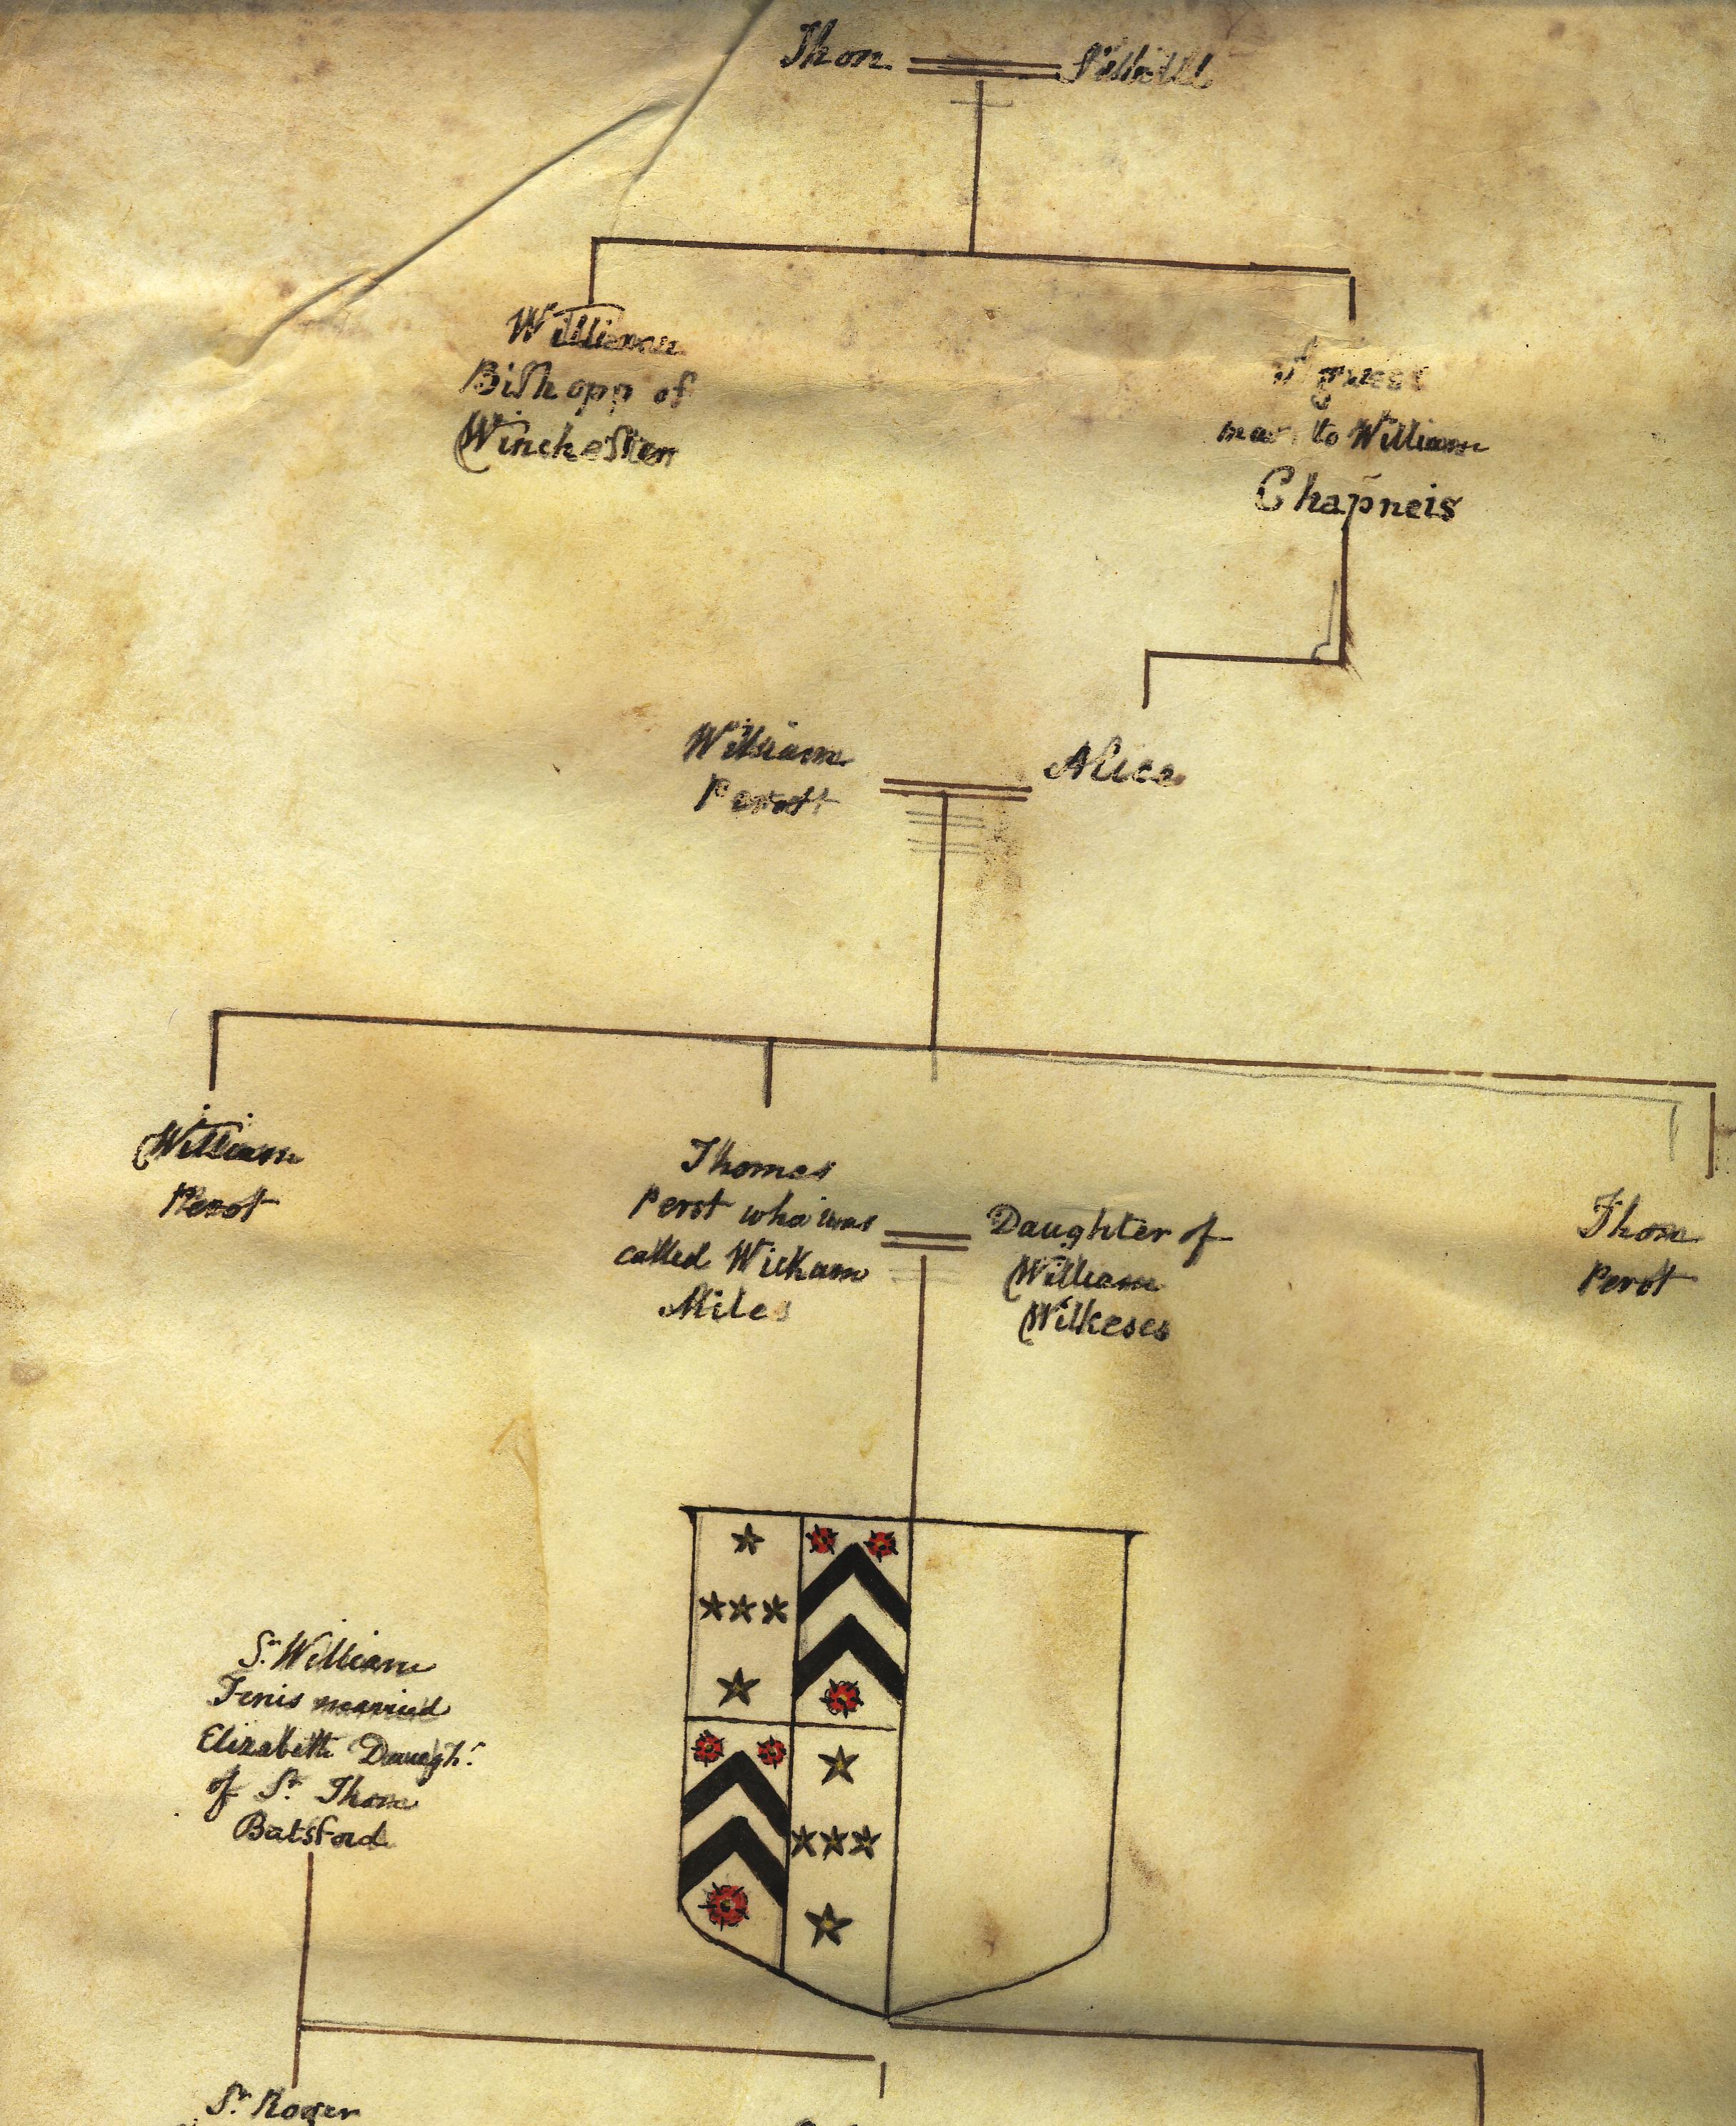 Thon
William
Bishopp of
Winchester
Agnees
mar. to William
Chapneis
William
Perott
Alice
William
Perot
Thomas
Perot who was
called Wickam
Miles
Daughter of
William
Wilkeses
Thon
Perot
Sr. William
Fenis married
Elizabeth Daugh.r
of Sr. Thom
Batsford
Sr. Roger